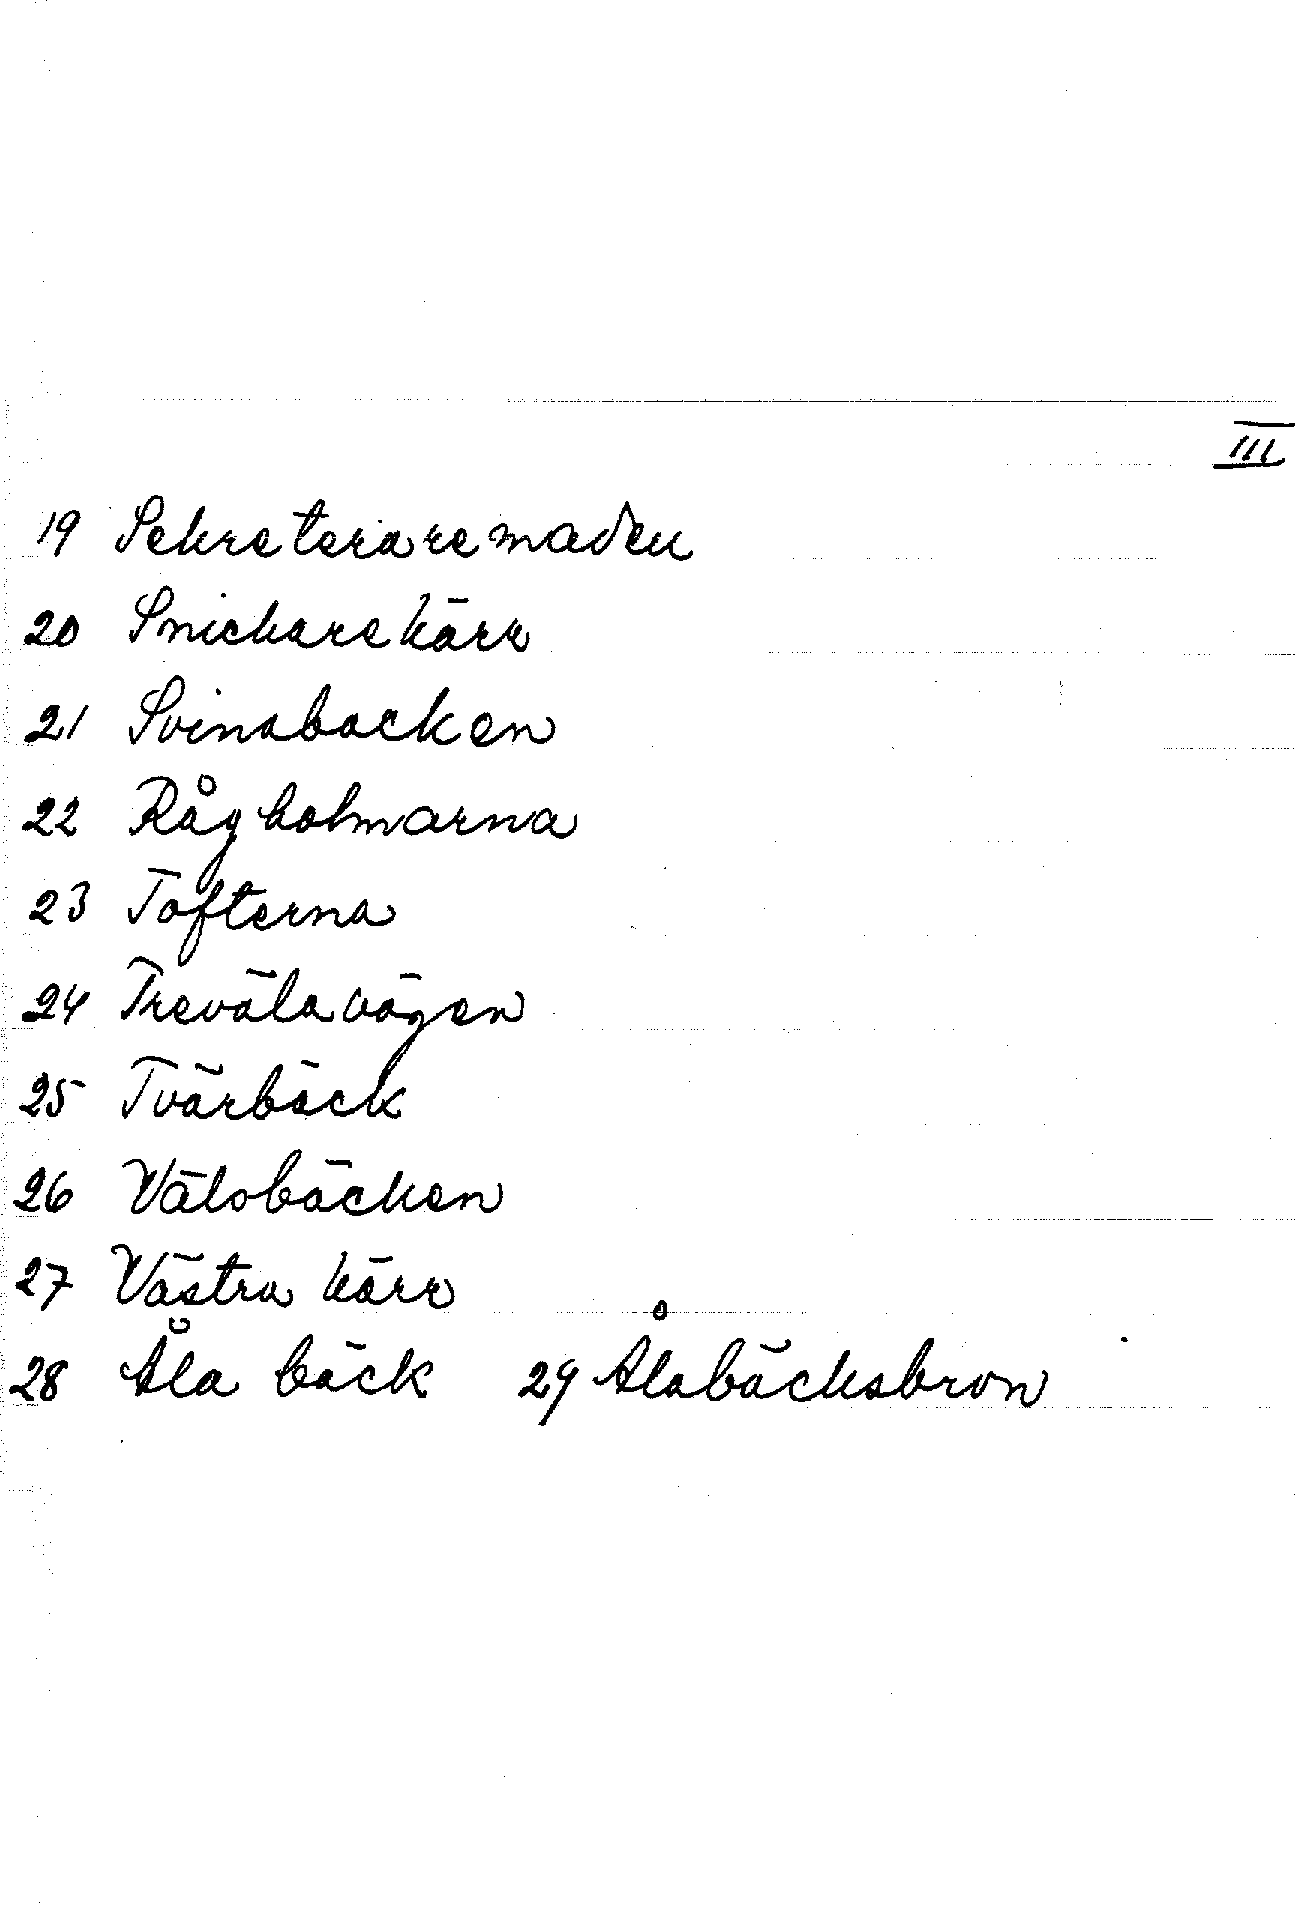 III
19 Sekreteraremaden
20 Snickarekärr
21 Svinabacken
22 Rågholmarna
23 Tofterna
24 Trevälavägen
25 Tvärbäck
26 Välabäcken
27 Västra kärr
28 Åla bäck 29 Ålabäcksbron